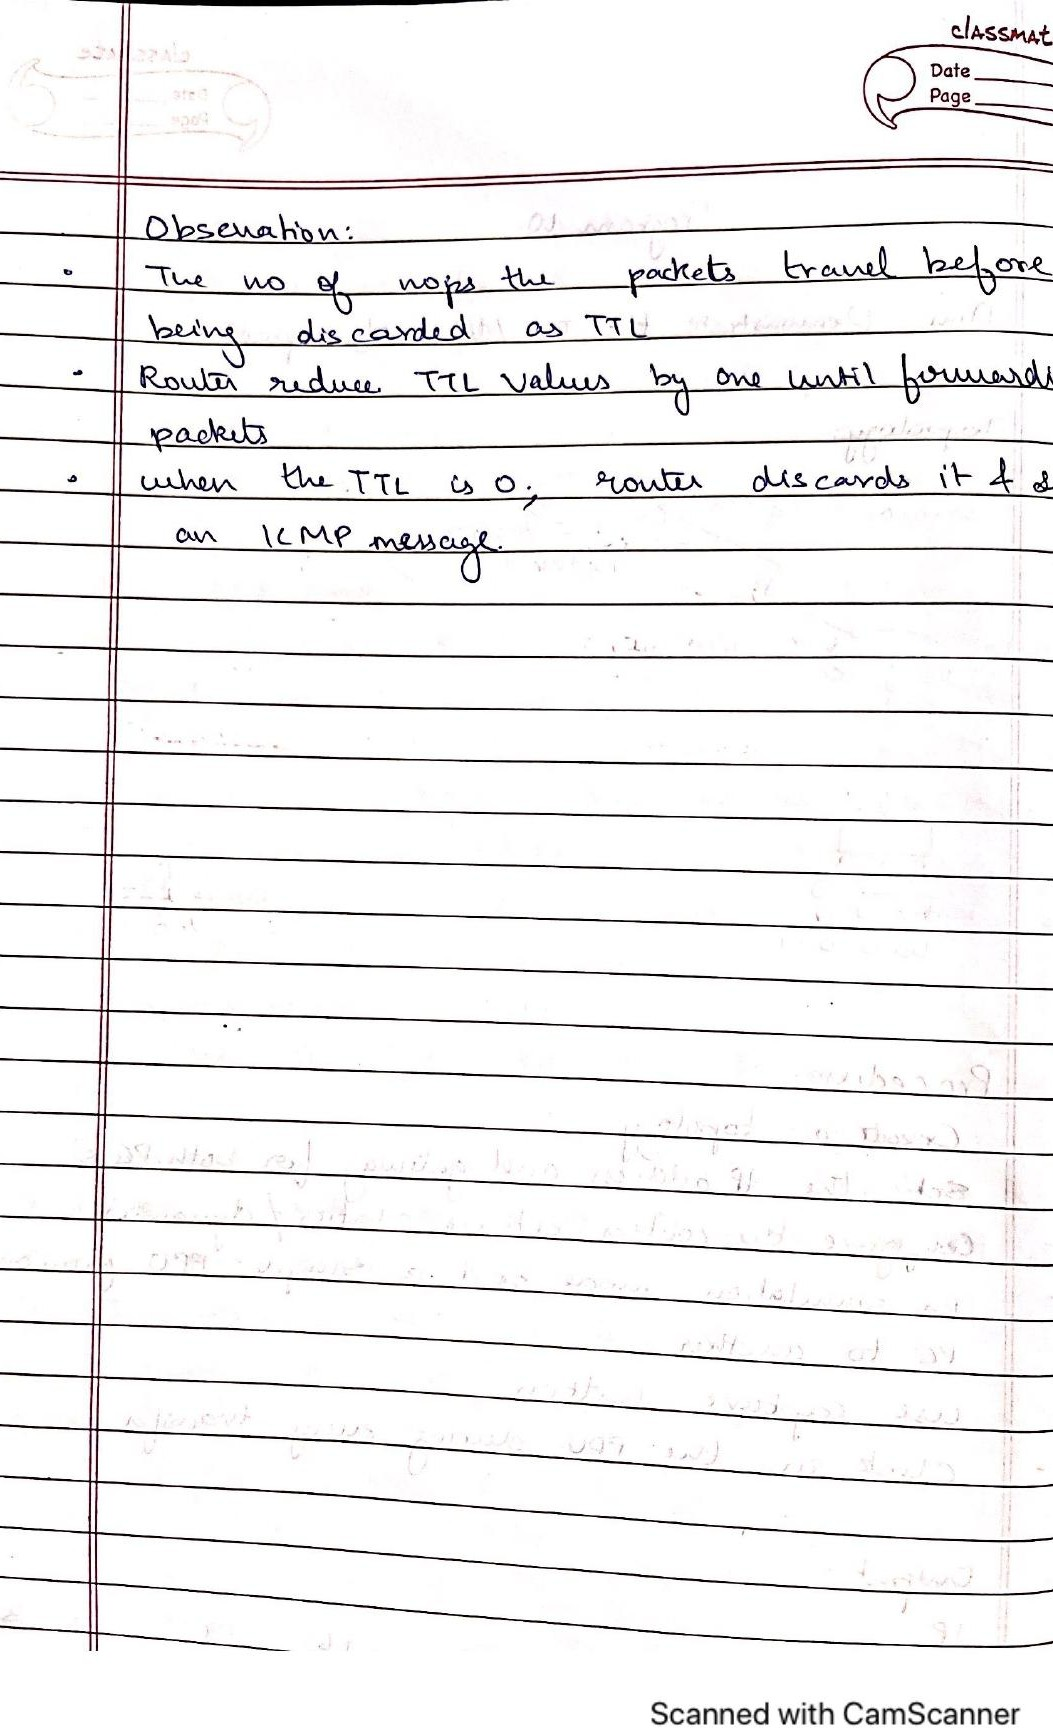 classmat
Date
Page
Observation:
The no of nops the packets travel before
being discarded as TTL
Router reduce TTL values by one until forwards
packets
when the TTL is 0; router discards it & s
an ICMP message.
Scanned with CamScanner